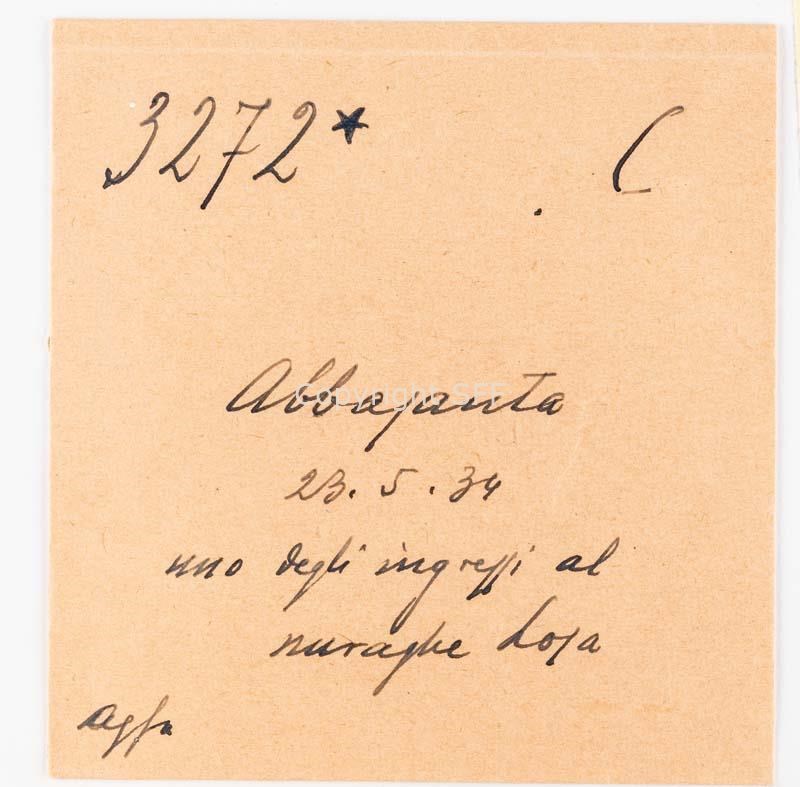 3272* C
Abbasanta
23.5.34
uno degli ingressi al
nuraghe Losa
Agfa
Copyright SFF